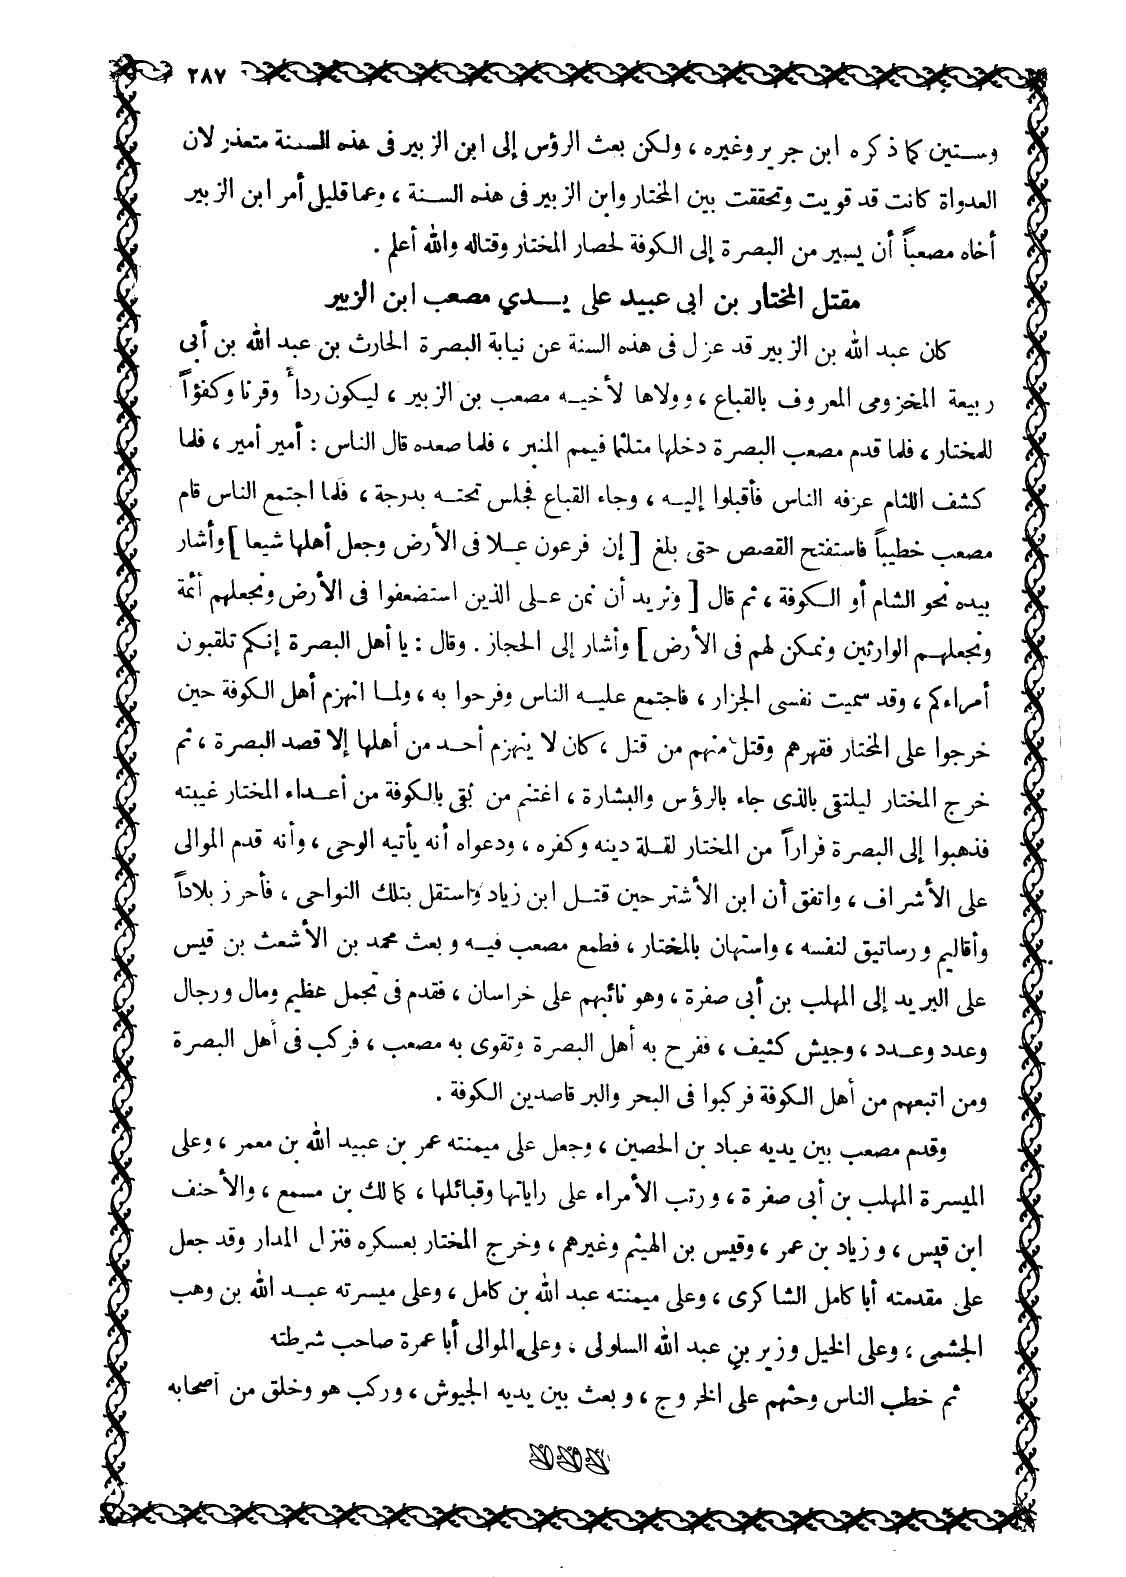 ٢٨٧
وستين كما ذكره ابن جرير وغيره ، ولكن بعث الرؤس إلى ابن الزبير فى هذه السنة متعذر لان
العدواة كانت قد قويت وتحققت بين المختار وابن الزبير فى هذه السنة ، وعما قليل أمر ابن الزبير
أخاه مصعباً أن يسير من البصرة إلى الكوفة لحصار المختار وقتاله والله أعلم .
مقتل المختار بن ابى عبيد على يدي مصعب ابن الزبير
كان عبد الله بن الزبير قد عزل فى هذه السنة عن نيابة البصرة الحارث بن عبد الله بن أبى
ربيعة المخزومى المعروف بالقباع ، وولاها لأخيه مصعب بن الزبير ، ليكون رداً وقرنا وكفؤاً
للمختار ، فلما قدم مصعب البصرة دخلها متلثما فيمم المنبر ، فلما صعده قال الناس : أمير أمير ، فلما
كشف اللثام عرفه الناس فأقبلوا إليه ، وجاء القباع فجلس تحته بدرجة ، فلما اجتمع الناس قام
مصعب خطيباً فاستفتح القصص حتى بلغ [ إن فرعون علا فى الأرض وجعل أهلها شيعا ] وأشار
بيده نحو الشام أو الكوفة ، ثم قال [ ونريد أن نمن على الذين استضعفوا فى الأرض ونجعلهم أئمة
ونجعلهم الوارثين ونمكن لهم فى الأرض ] وأشار إلى الحجاز . وقال : يا أهل البصرة إنكم تلقبون
أمراءكم ، وقد سميت نفسى الجزار ، فاجتمع عليه الناس وفرحوا به ، ولما انهزم أهل الكوفة حين
خرجوا على المختار فقهرهم وقتل منهم من قتل ، كان لا ينهزم أحد من أهلها إلا قصد البصرة ، ثم
خرج المختار ليلتقى بالذى جاء بالرؤس والبشارة ، اغتنم من بقى بالكوفة من أعداء المختار غيبته
فذهبوا إلى البصرة فراراً من المختار لقلة دينه وكفره ، ودعواه أنه يأتيه الوحى ، وأنه قدم الموالى
على الأشراف ، واتفق أن ابن الأشتر حين قتل ابن زياد واستقل بتلك النواحى ، فأحرز بلاداً
وأقاليم ورساتيق لنفسه ، واستهان بالمختار ، فطمع مصعب فيه وبعث محمد بن الأشعث بن قيس
على البريد إلى المهلب بن أبى صفرة ، وهو نائبهم على خراسان ، فقدم فى تجمل عظيم ومال ورجال
وعدد وعدد ، وجيش كثيف ، ففرح به أهل البصرة وتقوى به مصعب ، فركب فى أهل البصرة
ومن اتبعهم من أهل الكوفة فركبوا فى البحر والبر قاصدين الكوفة .
وقدم مصعب بين يديه عباد بن الحصين ، وجعل على ميمنته عمر بن عبيد الله بن معمر ، وعلى
الميسرة المهلب بن أبى صفرة ، ورتب الأمراء على راياتها وقبائلها ، كمالك بن مسمع ، والأحنف
ابن قيس ، وزياد بن عمر ، وقيس بن الهيثم وغيرهم ، وخرج المختار بعسكره فنزل المدار وقد جعل
على مقدمته أبا كامل الشاكرى ، وعلى ميمنته عبد الله بن كامل ، وعلى ميسرته عبد الله بن وهب
الجشمى ، وعلى الخيل وزير بن عبد الله السلولى ، وعلى الموالى أبا عمرة صاحب شرطته
ثم خطب الناس وحثهم على الخروج ، وبعث بين يديه الجيوش ، وركب هو وخلق من أصحابه